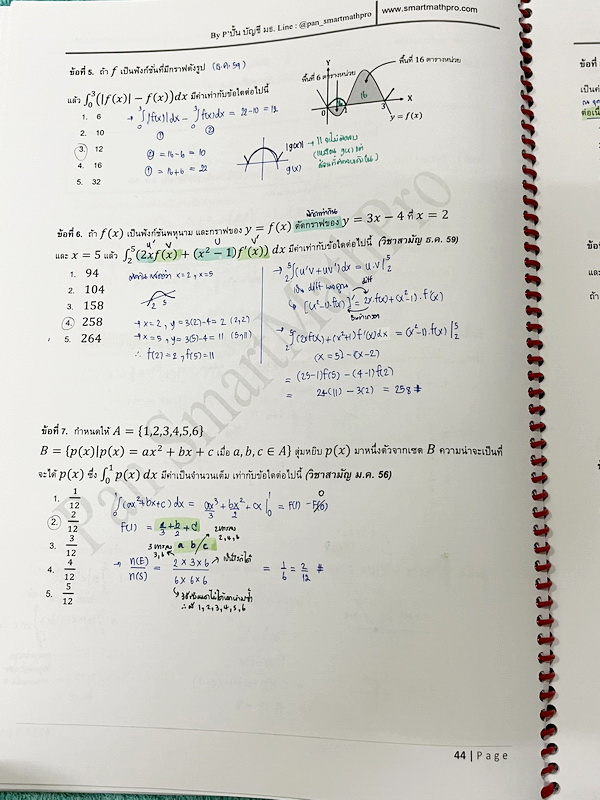 By P'ปั้น บัญชี มธ. Line : @pan_smartmathpro
www.smartmathpro.com
ข้อที่ 5. ถ้า f เป็นฟังก์ชันที่มีกราฟดังรูป (ธ.ค. 59)
แล้ว ∫₀³(|f(x)| − f(x))dx มีค่าเท่ากับข้อใดต่อไปนี้
1. 6
2. 10
3. 12
4. 16
5. 32
→ ∫₀³|f(x)|dx − ∫₀³f(x)dx = 22-10 = 12
① ②
② = 16-6 = 10
① = 16+6 = 22
พื้นที่ 6 ตารางหน่วย
พื้นที่ 16 ตารางหน่วย
Y
16
0
3
X
y = f(x)
|g(x)|
g(x)
ข้อที่ 6. ถ้า f(x) เป็นฟังก์ชันพหุนาม และกราฟของ y = f(x) ตัดกราฟของ y = 3x − 4 ที่ x = 2
และ x = 5 แล้ว ∫₂⁵(2xf(x) + (x² − 1)f′(x)) dx มีค่าเท่ากับข้อใดต่อไปนี้ (วิชาสามัญ ธ.ค. 59)
u' v u v'
1. 94
2. 104
3. 158
4. 258
5. 264
2 5
→ x = 2, y = 3(2)-4 = 2 (2,2)
→ x = 5, y = 3(5)-4 = 11 (5,11)
∴ f(2) = 2, f(5) = 11
→ ₂∫⁵(u'v+uv')dx = u.v|₂⁵
diff
→ [(x²-1).f(x)]' = 2x.f(x)+(x²-1).f'(x)
→ ₂∫⁵(2xf(x)+(x²-1)f'(x))dx = (x²-1).f(x)|₂⁵
(x=5)-(x=2)
= (25-1)f(5) - (4-1)f(2)
= 24(11) - 3(2) = 258 #
ข้อที่ 7. กำหนดให้ A = {1,2,3,4,5,6}
B = {p(x)|p(x) = ax² + bx + c เมื่อ a, b, c ∈ A} สุ่มหยิบ p(x) มาหนึ่งตัวจากเซต B ความน่าจะเป็นที่
จะได้ p(x) ซึ่ง ∫₀¹ p(x) dx มีค่าเป็นจำนวนเต็ม เท่ากับข้อใดต่อไปนี้ (วิชาสามัญ ม.ค. 56)
1. 1/12
2. 2/12
3. 3/12
4. 4/12
5. 5/12
∫₀¹(ax²+bx+c)dx = ax³/3 + bx²/2 + cx|₀¹ = F(1) - F(0)
0
F(1) = a/3 + b/2 + c
2,4,6
3,6
a b c
→ n(E)/n(S) = 2 x 3 x 6 / 6 x 6 x 6 = 1/6 = 2/12 #
1,2,3,4,5,6
Pan SmartMathPro
44 | Page